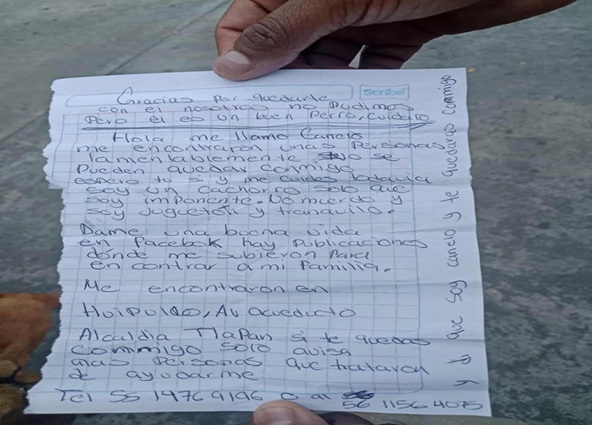 scribe
Gracias por quedarte
con el nosotros no Pudimos
Pero él es un buen Perro, cuidalo
Hola me llamo Canelo
me encontraron unas Personas
lamentablemente no se
Pueden quedar conmigo
espero tu si y me cuides todavia
soy un cachorro solo que
soy imponente. No muerdo y
soy jugueton y tranquilo.
Dame una buena vida
en Facebook hay Publicaciones
dónde me subieron Para
en contrar a mi familia.
Me encontraron en
Huipulco, Av acueducto
Alcaldia Tlalpan si te quedas
commigo solo avisa
alas Personas que trataron
de ayudarme
Tel 55 1476 9196 O al 56 1156 4075
y di que soy canelo y te quedaras commigo